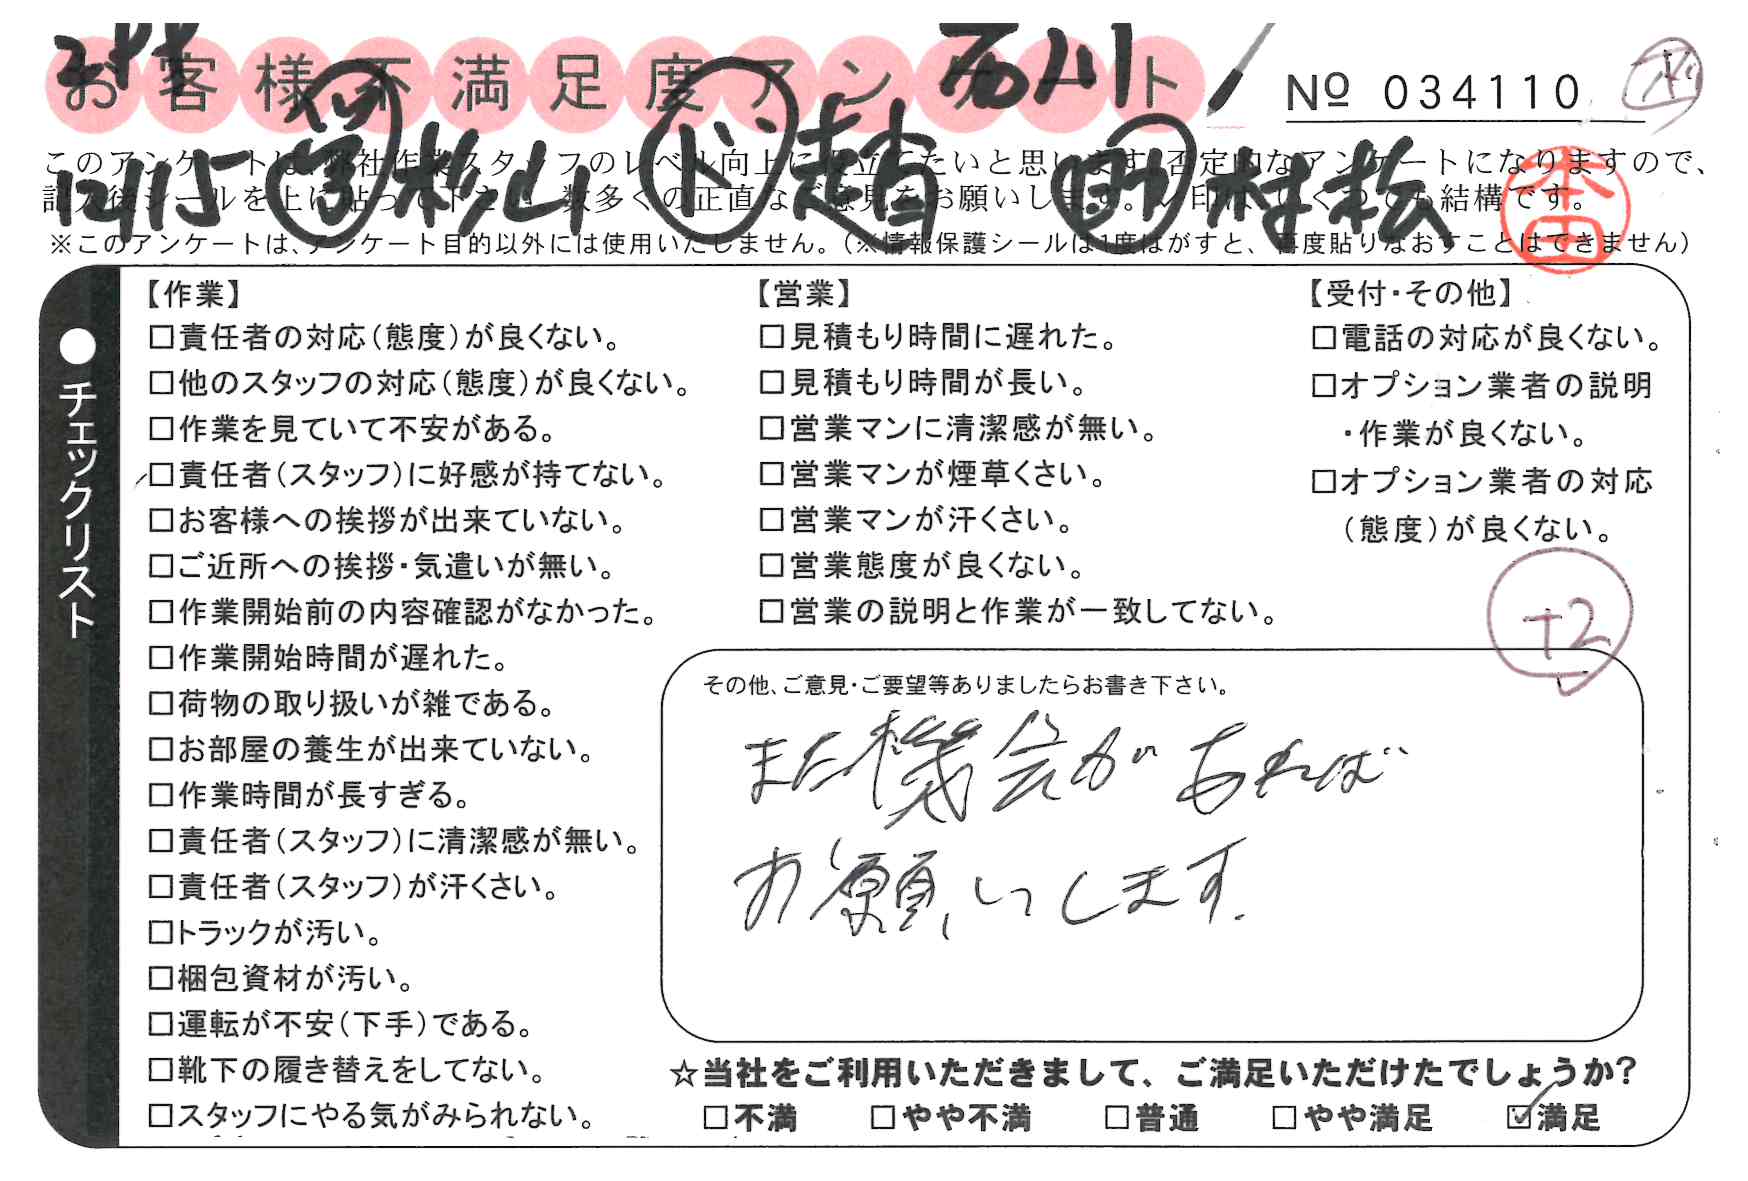 お客様不満足度アンケート
西川
№ 034110
このアンケートは、弊社作業スタッフのレベル向上に役立てたいと思います。否定的なアンケートになりますので、
記入後シールを上に貼って下さい。数多くの正直なご意見をお願いします。✓印は、いくつでも結構です。
12/15 杉山 ド 趙 助 村松
本田
※このアンケートは、アンケート目的以外には使用いたしません。(※情報保護シールは1度はがすと、再度貼りなおすことはできません)
●チェックリスト
【作業】
□責任者の対応(態度)が良くない。
□他のスタッフの対応(態度)が良くない。
□作業を見ていて不安がある。
□責任者(スタッフ)に好感が持てない。
□お客様への挨拶が出来ていない。
□ご近所への挨拶・気遣いが無い。
□作業開始前の内容確認がなかった。
□作業開始時間が遅れた。
□荷物の取り扱いが雑である。
□お部屋の養生が出来ていない。
□作業時間が長すぎる。
□責任者(スタッフ)に清潔感が無い。
□責任者(スタッフ)が汗くさい。
□トラックが汚い。
□梱包資材が汚い。
□運転が不安(下手)である。
□靴下の履き替えをしてない。
□スタッフにやる気がみられない。
【営業】
□見積もり時間に遅れた。
□見積もり時間が長い。
□営業マンに清潔感が無い。
□営業マンが煙草くさい。
□営業マンが汗くさい。
□営業態度が良くない。
□営業の説明と作業が一致してない。
【受付・その他】
□電話の対応が良くない。
□オプション業者の説明
・作業が良くない。
□オプション業者の対応
(態度)が良くない。
+2
その他、ご意見・ご要望等ありましたらお書き下さい。
また機会があれば
お願いします.
☆当社をご利用いただきまして、ご満足いただけたでしょうか?
□不満 □やや不満 □普通 □やや満足 ☑満足